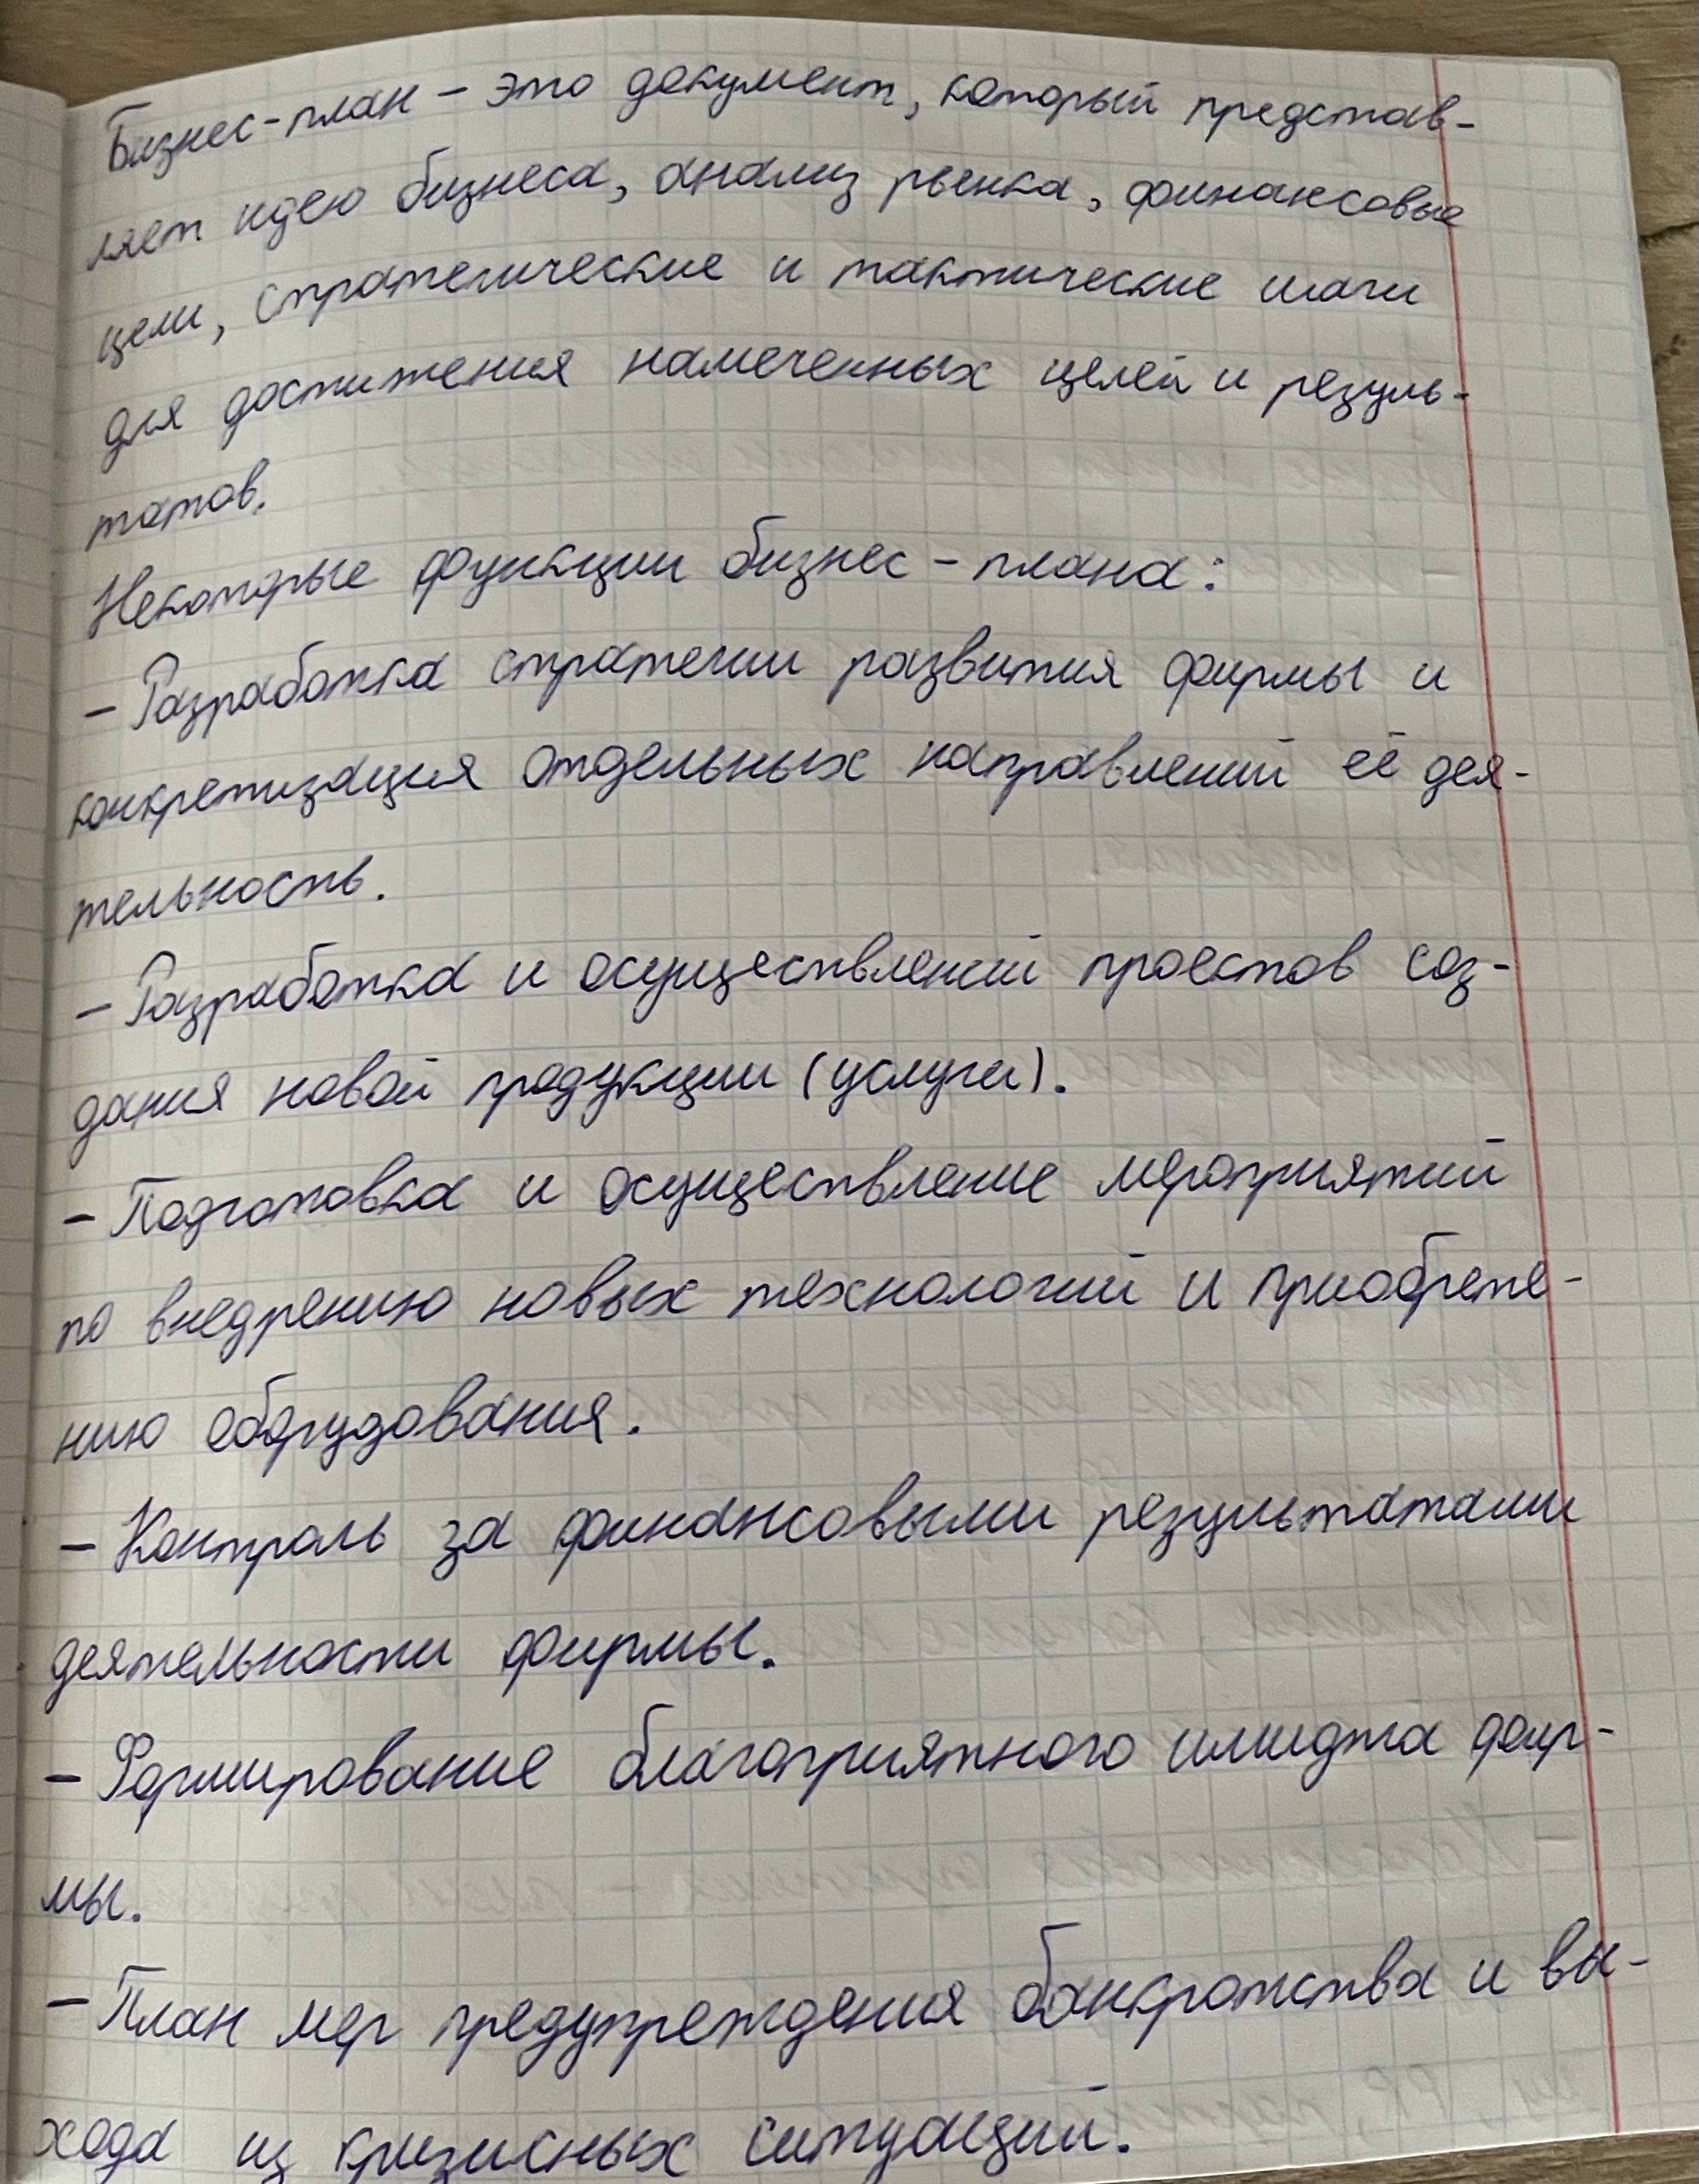 Бизнес-план - это документ, который представ-
ляет идею бизнеса, анализ рынка, финансовые
цели, стратегические и тактические шаги
для достижения намеченных целей и резуль-
татов.
Некоторые функции бизнес-плана:
- Разработка стратегии развития фирмы и
конкретизация отдельных направлений её дея-
тельность.
- Разработка и осуществлений проестов соз-
дания новой продукции (услуги).
- Подготовка и осуществление мероприятий
по внедрению новых технологий и приобрете-
нию оборудования.
- Контроль за финансовыми результатами
деятельности фирмы.
- Формирование благоприятного имиджа фир-
мы.
- План мер предупреждения банкротства и вы-
хода из кризисных ситуаций.